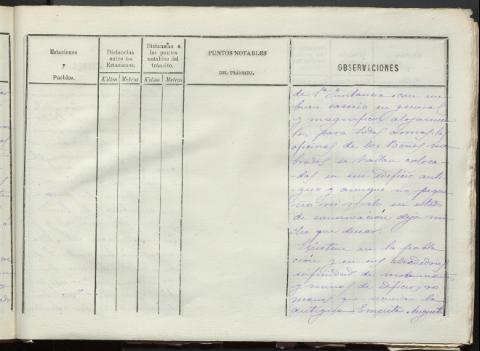 Estaciones
y
Pueblos.
Distancias
entre las
Estaciones.
Kilóms
Metros
Distancias á
los puntos
notables del
tránsito.
Kilóms
Metros
PUNTOS NOTABLES
DEL TRÁNSITO.
OBSERVACIONES
de 1ª Instancia; con un
buen caserío en general
y magníficos alojamien
tos para todas armas. Las
oficinas de los
se hallan coloca
das en un edificio anti
guo y aunque no peque
ño su estado
de conservación deja mu
cho que desear.
Existen en la pobla
ción y en sus alrededores
infinidad de
y ruinas de edificios ro
manos que recuerdan la
antigua Emerita Augusta